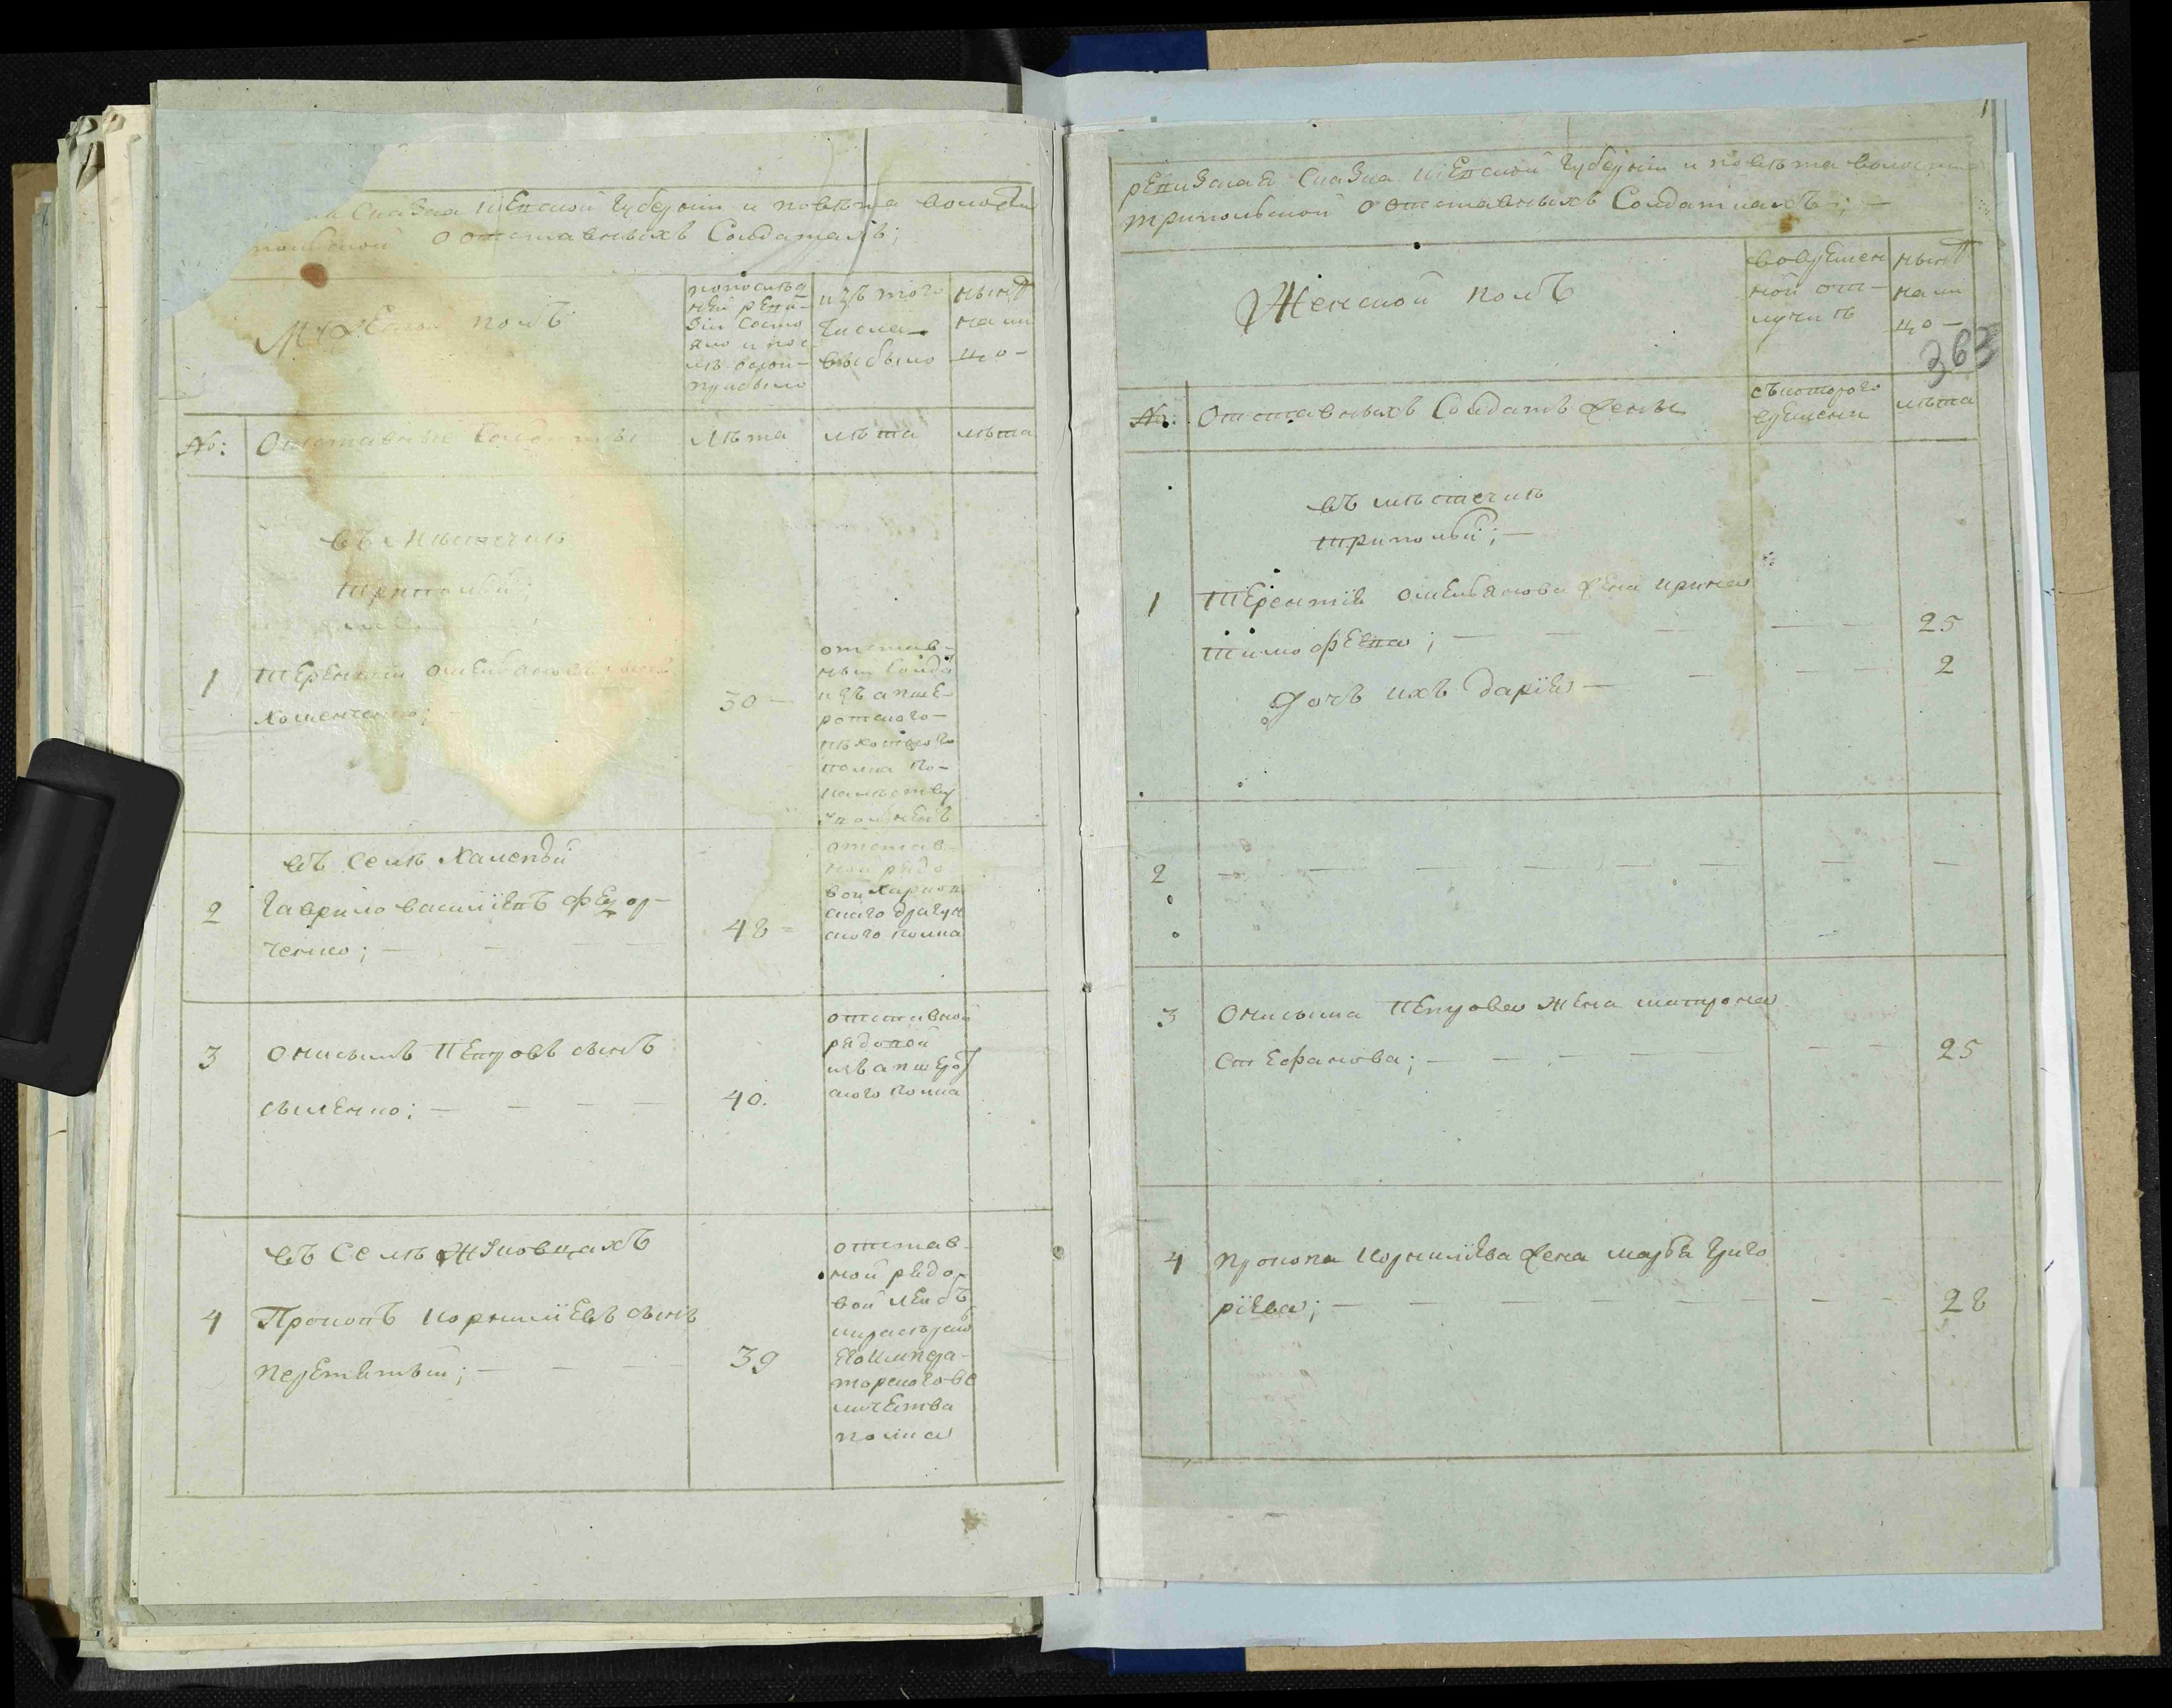 Сказка Кіевской Губерніи и повѣта волости
польской о отставныхъ Солдатахъ;
Мужеской полъ
попослѣд
ней реви-
зіи состо
яло и пос
лѣ оной-
прибыло
изъ того
числа
выбыло
нынѣ
на ли
цо-
№:
Отставные Солдаты
лѣта
лѣта
лѣта
въ Мѣстечкѣ
Трипольи;
1
Терентій Омельяновъ сынъ
Хоменченко;
30 —
отстав-
ный солда
изъ апше-
ронскаго
пѣхотного
полка
въ селѣ Халепьи
2
Гаврило василіевъ федор-
ченко; — — —
48 -
отстав-
ной рядо
вой
скаго драгун
ского полка
3
Онисимъ Петровъ сынъ
сыленко; — — — —
40.
отставной
рядовой
изъ апшеро
ского полка
въ Селѣ Жуковцахъ
4
Прокопъ Корниліевъ сынъ
перетятый; — — —
39
отстав
ной рядо-
вой Лейбъ
кирасѣрско
Его Импера-
торского ве
личества
полка
ревизская Сказка Кіевской Губерніи и повѣта волости
трипольской о отставныхъ Солдаткахъ; —
Женской полъ
вовремен
ной от-
лучкѣ
нынѣ
на ли
цо —
363
№:
Отставныхъ Солдатъ жены
съкоторого
времени
лѣта
въ мѣстечкѣ
Трипольи; —
1
Терентія омельянова жена ирина
Тимофеева; — — — — —
25
Дочъ ихъ Дарія — — — —
2
2
— — — — — — — —
3
Онисима Петрова жена матрона
Стефанова; — — — — — —
25
4
прокопа Корниліева жена марѳа григо
ріева; — — — — — — —
28